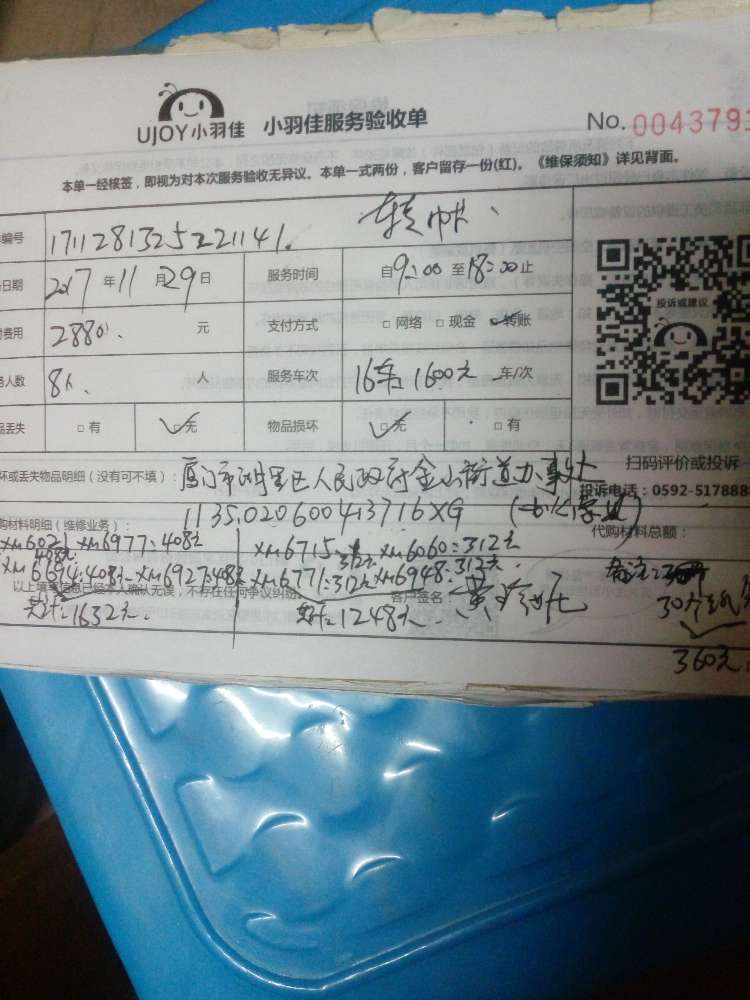 UJOY小羽佳 小羽佳服务验收单 No. 0043793
本单一经核签，即视为对本次服务验收无异议。本单一式两份，客户留存一份(红)。《维保须知》详见背面。
编号 1711281325221141.
日期 2017 年 11 月 29 日 服务时间 自 9:00 至 18:00 止
费用 2880. 元 支付方式 □ 网络 □ 现金 □ 转账
人数 8人. 人 服务车次 16车 1600元 车/次
品丢失 □ 有 □ 无 物品损坏 □ 无 □ 有
投诉或建议
扫码评价或投诉
投诉电话：0592-5178888
坏或丢失物品明细（没有可不填）：厦门市湖里区人民政府金山街道办事处
1135020600413716XG
购材料明细（维修业务）： 代购材料总额：
XM6021 XM6977:408元 XM6715:312元 XM6060:312元
408元
XM6694:408元 XM6927:408元 XM6771:312元 XM6948:312元 备注:
以上填写信息已经本人确认无误，不存在任何争议纠纷 客户签名：黄
共计:1632元. 共计:1248元.
360元